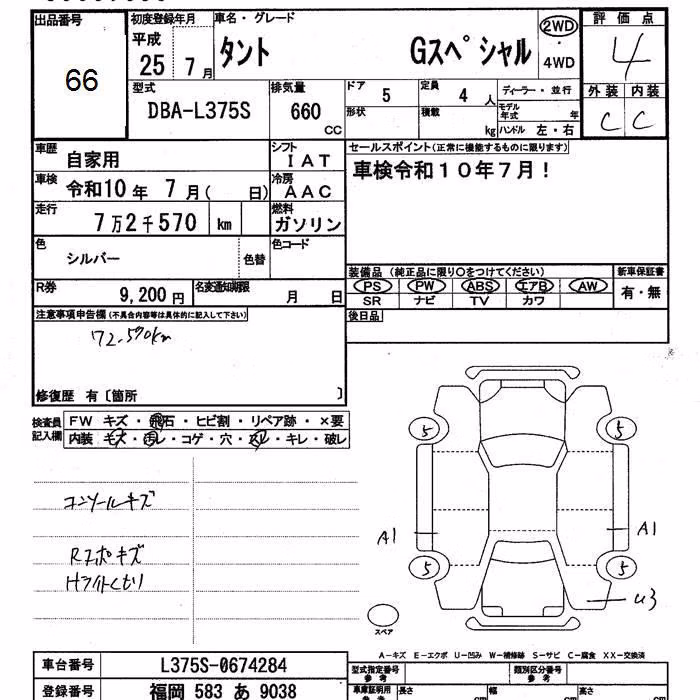 出品番号 初度登録年月 車名・グレード 評価点
66 平成 25 7月 タント Gスペシャル 2WD・4WD 4
型式 排気量 ドア 定員 ディーラー・並行 外装 内装
DBA-L375S 660 CC 5 4人 モデル年式 年 C C
形状 積載 kg ハンドル 左・右
車歴 自家用 シフト IAT セールスポイント(正常に機能するものに限ります)
車検 令和10年 7月( 日) 冷房 AAC 車検令和10年7月!
走行 7万2千570 km 燃料 ガソリン
色 シルバー 色替 色コード
装備品 (純正品に限り〇をつけてください) 新車保証書
R券 9,200円 名変通知期限 月 日 PS PW ABS エアB AW 有・無
SR ナビ TV カワ
注意事項申告欄(不具合内容等は具体的に記入して下さい) 後日品
72.570km
修復歴 有〔箇所 〕
検査員記入欄 FW キズ・飛石・ヒビ割・リペア跡・×要
内装 キズ・汚レ・コゲ・穴・スレ・キレ・破レ
5 5
コンソールキズ
A1 A1
Rスポキズ
Hライトくもり
5 5
U3
スペア
A-キズ E-エクボ U-凹み W-補修跡 S-サビ C-腐食 XX-交換済
車台番号 L375S-0674284 型式指定番号 参考 類別区分番号 参考
登録番号 福岡 583 あ 9038 車庫証明用 参考 長さ cm 幅 cm 高さ cm